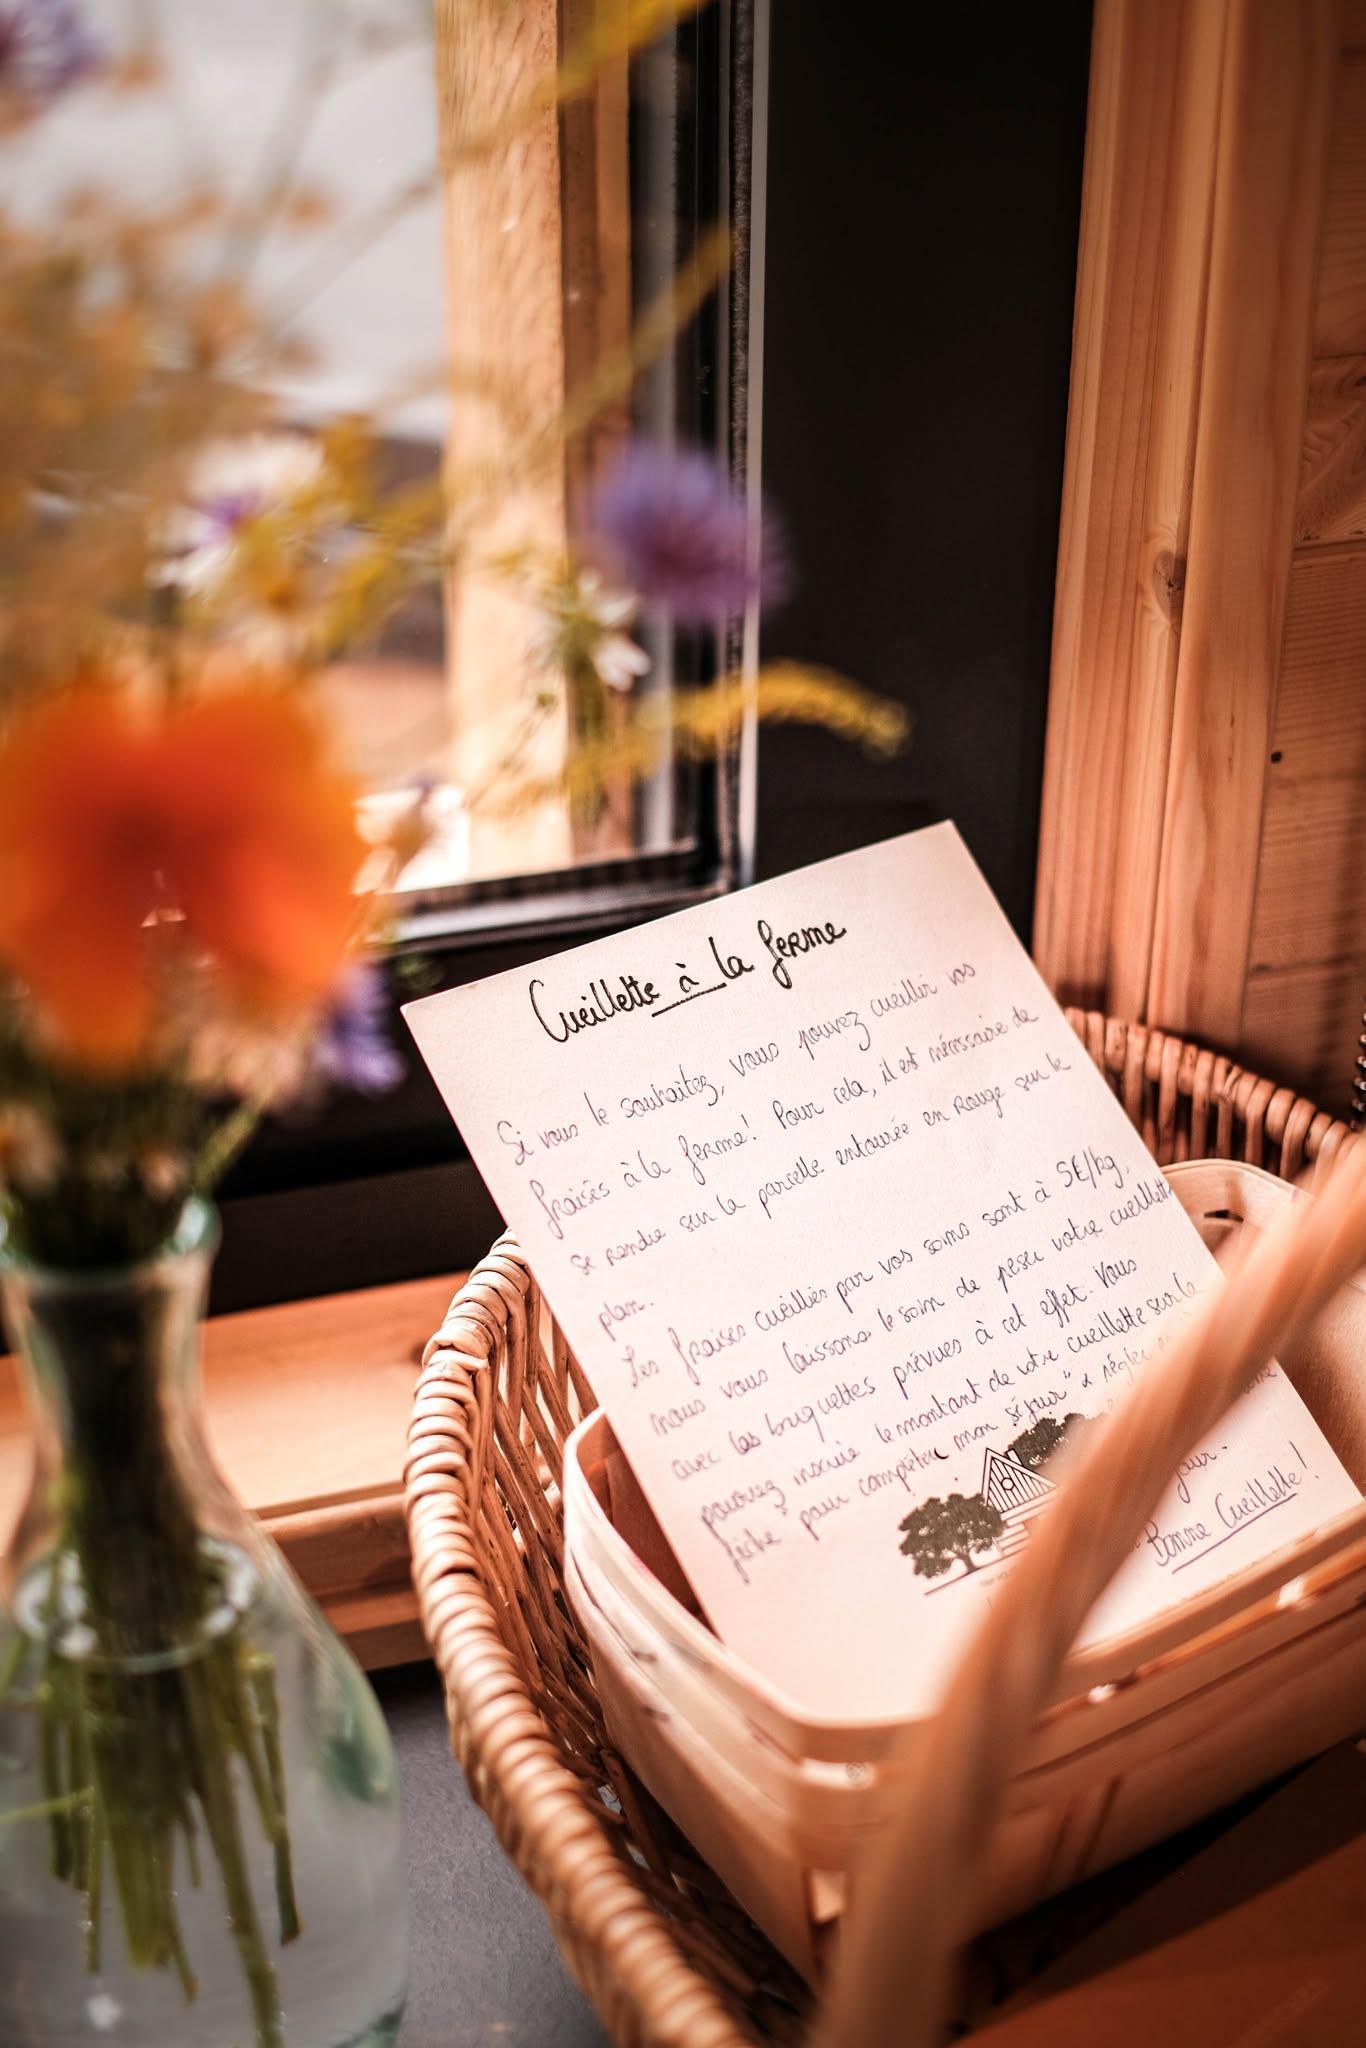 Cueillette à la ferme
Si vous le souhaitez, vous pouvez cueillir vos
fraises à la ferme! Pour cela, il est nécessaire de
se rendre sur la parcelle entourée en rouge sur le
plan.
Les fraises cueillies par vos soins sont à 5€/kg,
nous vous laissons le soin de peser votre cueillette
avec les barquettes prévues à cet effet. Vous
pouvez inscrire le montant de votre cueillette sur la
fiche "pour compléter mon séjour" & régler
jour.
Bonne Cueillette!